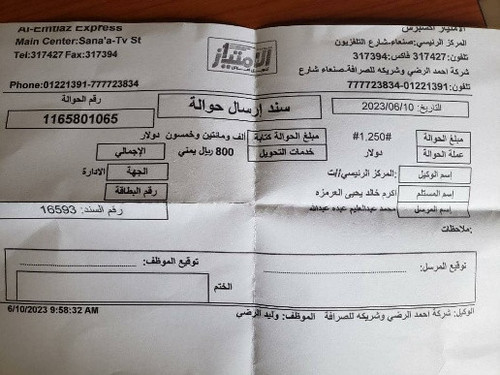 Al-Emtiaz Express
Main Center:Sana'a-Tv St
Tel:317427 Fax:317394
Phone:01221391-777723834
الامتياز
الامتياز اكسبرس
المركز الرئيسي:صنعاء-شارع التلفزيون
تلفون:317427 فاكس:317394
شركة احمد الرضي وشريكه للصرافة-صنعاء شارع
تلفون:01221391-777723834
التاريخ: 2023/06/10
سند إرسال حوالة
رقم الحوالة
1165801065
مبلغ الحوالة #1,250# مبلغ الحوالة كتابة الف ومانتين وخمسون دولار
عملة الحوالة دولار خدمات التحويل 800 ريال يمني الإجمالي
إسم الوكيل :المركز الرئيسي//ت الجهة الادارة
إسم المستلم اكرم خالد يحيى العرمزه رقم البطاقة
إسم المرسل محمد عبدالعليم عبده عبدالله رقم السند: 16593
ملاحظات:
توقيع المرسل: توقيع الموظف:
الختم
الوكيل: شركة احمد الرضي وشريكه للصرافة الموظف: وليد الرضي 6/10/2023 9:58:32 AM